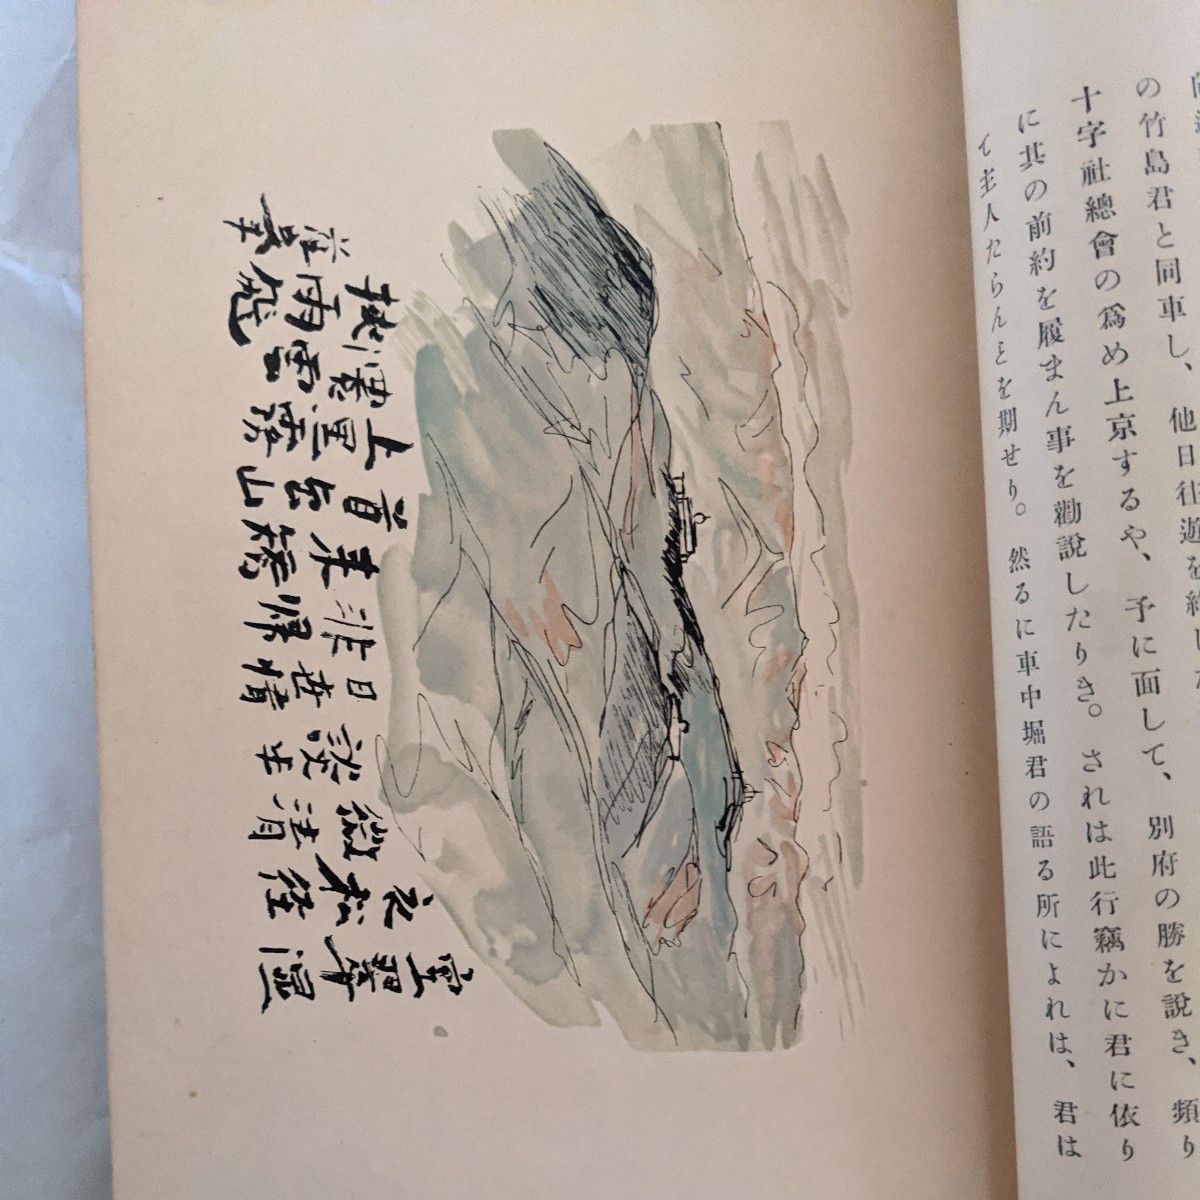 の竹島君と同車し、他日往遊を約した
十字社總會の爲め上京するや、予に面して、別府の勝を說き、頻り
に其の前約を履まん事を勸說したりき。されは此行竊かに君に依り
て主人たらんとを期せり。然るに車中堀君の語る所によれは、君は
空翠湿
衣松径
微清
談半
日世情
非帰
来矯
首岳山
上黒霧
濃雲
挟雨飛
蘇峯